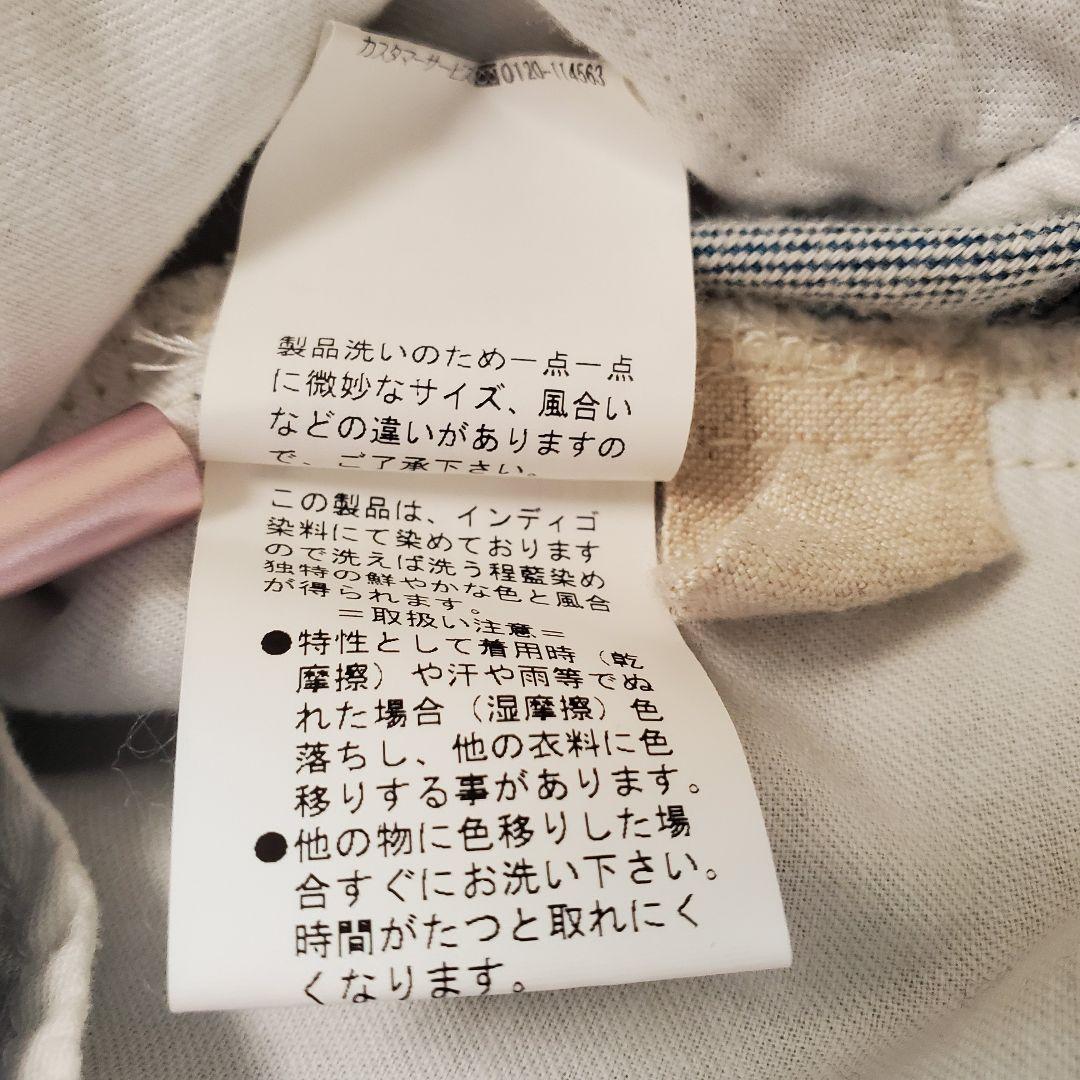 カスタマーサービス 0120-114563
製品洗いのため一点一点
に微妙なサイズ、風合い
などの違いがありますの
で、ご了承下さい。
この製品は、インディゴ
染料にて染めております
ので洗えば洗う程藍染め
独特の鮮やかな色と風合
が得られます。
＝取扱い注意＝
●特性として着用時（乾
摩擦）や汗や雨等でぬ
れた場合（湿摩擦）色
落ちし、他の衣料に色
移りする事があります。
●他の物に色移りした場
合すぐにお洗い下さい。
時間がたつと取れにく
くなります。